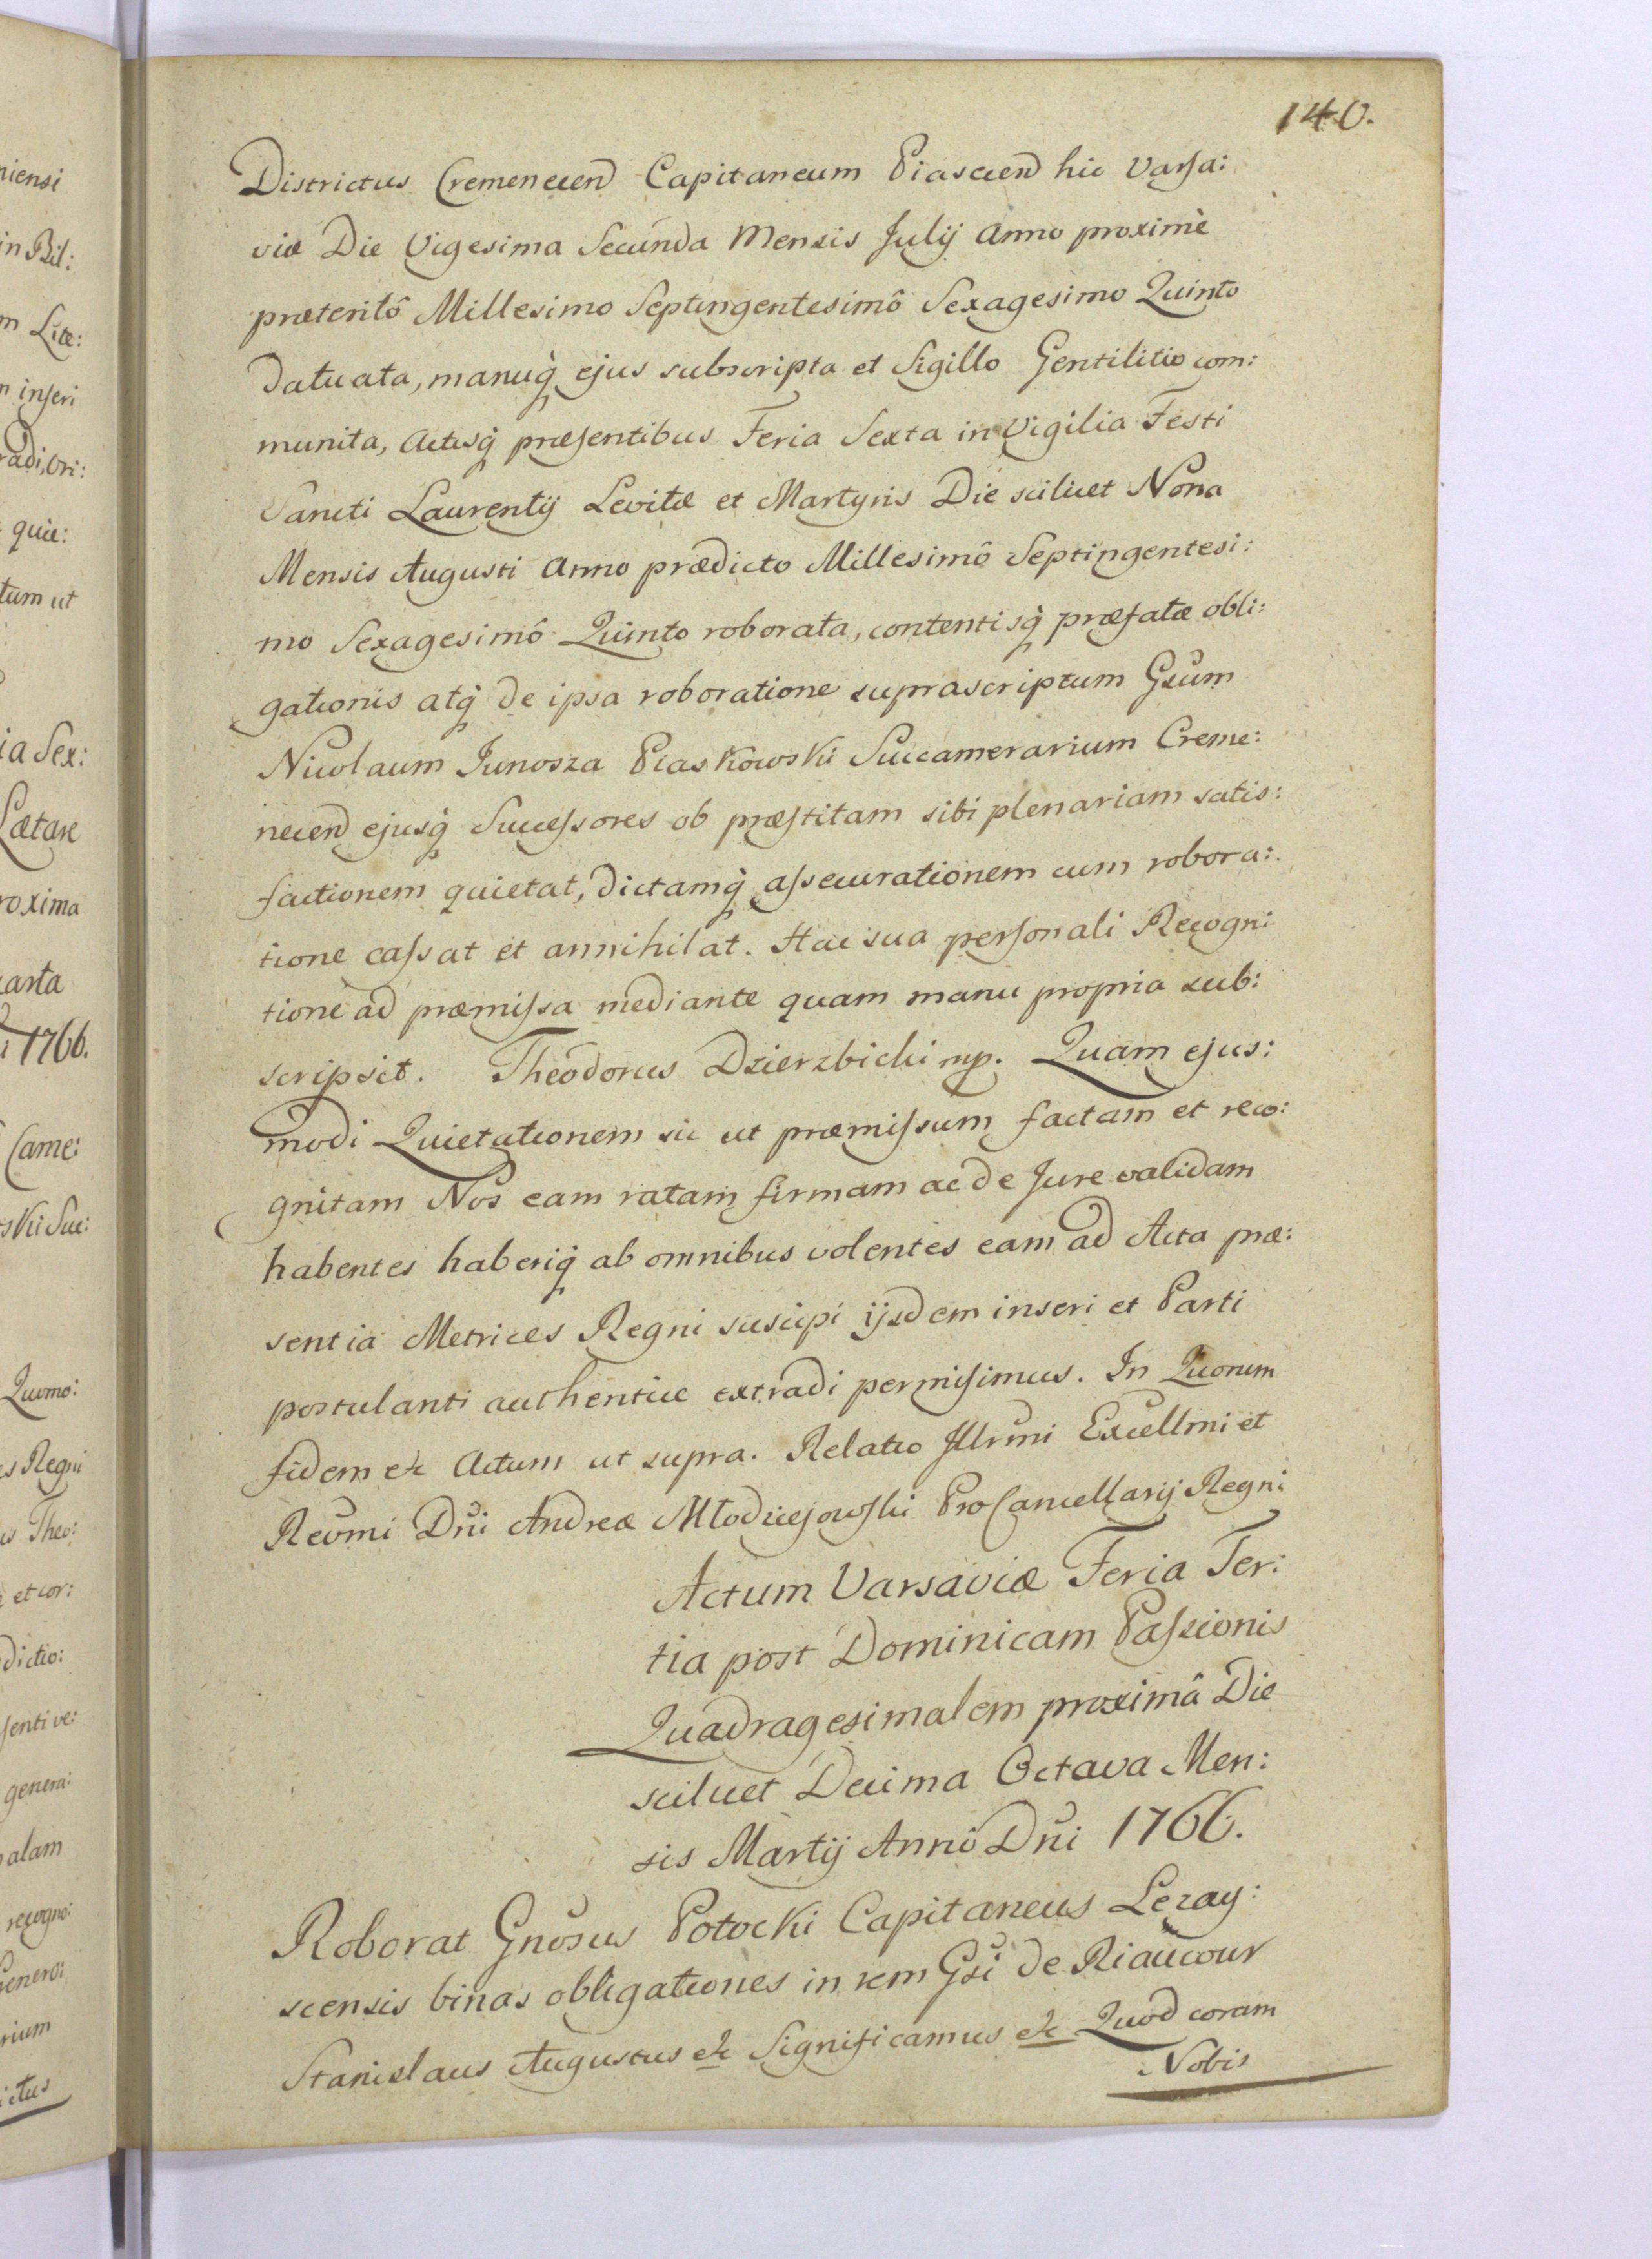 140.
Districtus Cremenecen Capitaneum Piasecen hic Varsa:
viæ Die Vigesima Secunda Mensis Julij Anno proximè
præteritô Millesimo Septingentesimô Sexagesimo Quinto
datuata, manuq̀ ejus subscripta et Sigillo Gentilitio com:
munita, Actisq̀ præsentibus Feria Sexta in Vigilia Festi
Sancti Laurentij Levitæ et Martyris Die scilicet Nona
Mensis Augusti Anno prædicto Millesimô Septingentesi:
mo Sexagesimô Quinto roborata, contentisq̀ præfatæ obli:
gationis atq̀ de ipsa roboratione suprascriptum Gsum
Nicolaum Junosza Piaskowski Succamerarium Creme:
necen ejusq̀ Successores ob præstitam sibi plenariam satis:
factionem quietat, dictamq̀ assecurationem cum robora:
tione cassat et annihilat. Hac sua personali Recogni
tione ad præmissa mediante quam manu propria sub:
scripsit. Theodorus Dzierzbicki mp. Quam ejus:
modi Quietationem sic ut præmissum factam et reco:
gnitam Nos eam ratam firmam ac de Jure validam
habentes haberiq̀ ab omnibus volentes eam ad Acta præ:
sentia Metrices Regni suscipi ijsdem inseri et Parti
postulanti authentice extradi permisimus. In Quorum
fidem &c Actum ut supra. Relatio Illrmi Excellmi et
Revmi Dni Andreæ Młodziejowski ProCancellarij Regni
Actum Varsaviæ Feria Ter:
tia post Dominicam Passionis
Quadragesimalem proximâ Die
scilicet Decima Octava Men:
sis Martij Annô Dni 1766.
Roborat Gnosus Potocki Capitaneus Lezay:
scensis binas obligationes in rem Gsi de Riaucour
Stanislaus Augustus &c Significamus &c Quod coram
Nobis
niensi
in Bil:
m Lite:
inseri
radi, Ori:
quie:
tum ut
ia Sex:
Lætare
roxima
uarta
1766.
Came:
ski Suc:
Quomo:
es Regni
us Theo:
et cor:
dictio:
senti ve:
genera:
palam
recogno:
Genero:
rium
ictus